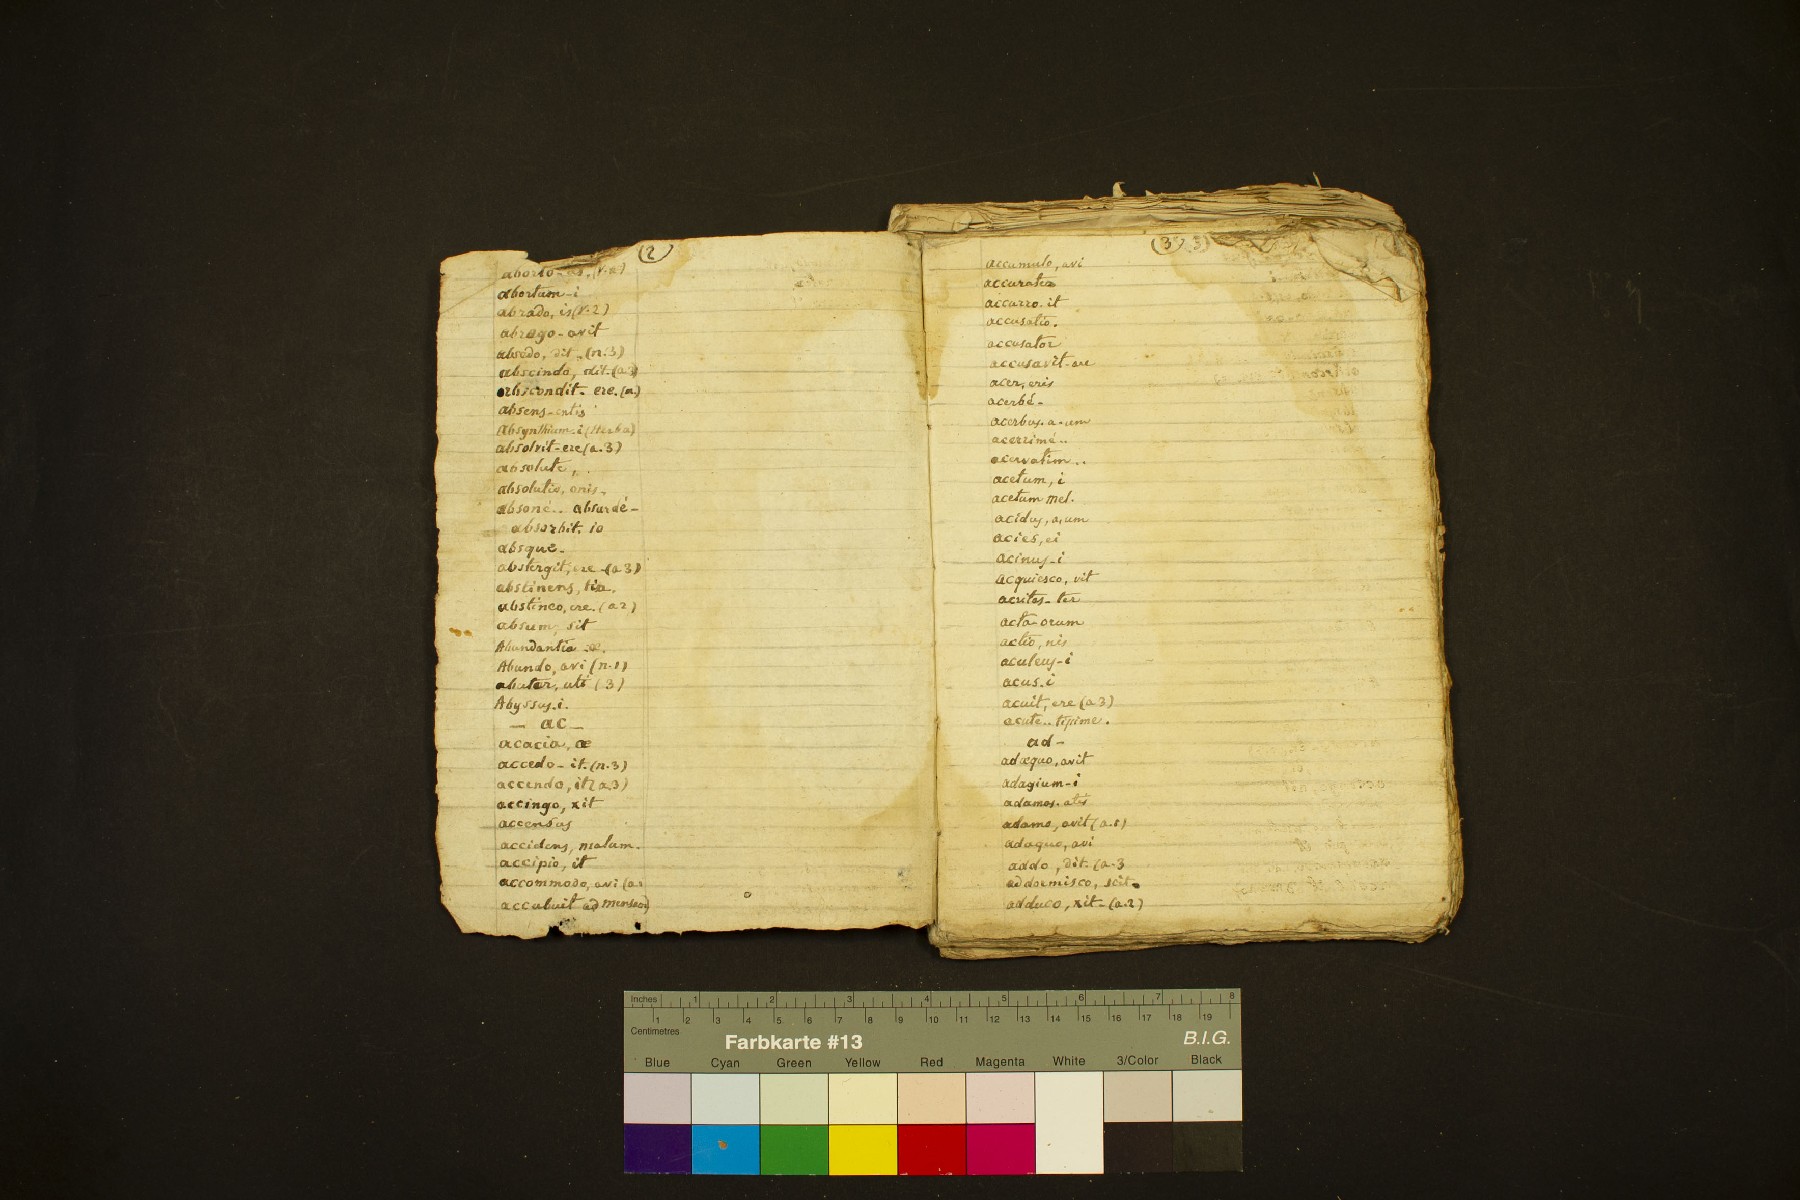 (2)
aborto-as. (v.n)
abortum-i
abrado, is (v.2)
abrogo-avit
absedo, dit-(n.3)
abscindo, dit-(a3)
abscondit-ere.(a.)
absens-entis
Absynthium-i (Herba)
absolvit-ere (a.3)
absolute,.
absolutio, onis-
absoné.. absurdé-
absorbit. io
absque-
abstergit, ere-(a3)
abstinens, tia,
abstineo, ere.(a2)
absum, sit
Abundantia æ.
Abundo, avi (n.1)
abutor, uti (3)
Abyssus.i.
- ac -
acacia, æ
accedo- it.(n.3)
accendo, it (a3)
accingo, xit
accensus
accidens, malum.
accipio, it
accommodo, avi (a.
accubuit ad mensam)
(3) 3)
accumulo, avi
accuratio
accurro-it
accusatio.
accusator
accusavit-are
acer, eris
acerbé-
acerbus.a-um
acerrimé..
acervatim..
acetum, i
acetum mel.
acidus, a, um
acies, ei
acinus-i
acquiesco, vit
acritas-ter
acta-orum
actio, nis
aculeus-i
acus.i
acuit, ere (a3)
acute..tissime.
ad-
adæquo, avit
adagium-i
adamas.atis
adamo, avit (a.1)
adaquo, avi
addo, dit.(a.3
addormisco, scit.
adduco, xit-(a.2)
Inches 1 2 3 4 5 6 7 8
Centimetres 1 2 3 4 5 6 7 8 9 10 11 12 13 14 15 16 17 18 19
Farbkarte #13 B.I.G.
Blue Cyan Green Yellow Red Magenta White 3/Color Black